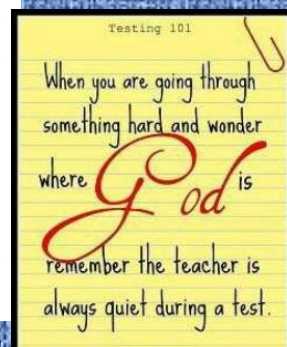 Testing 101
When you are going through
something hard and wonder
where God is
remember the teacher is
always quiet during a test.